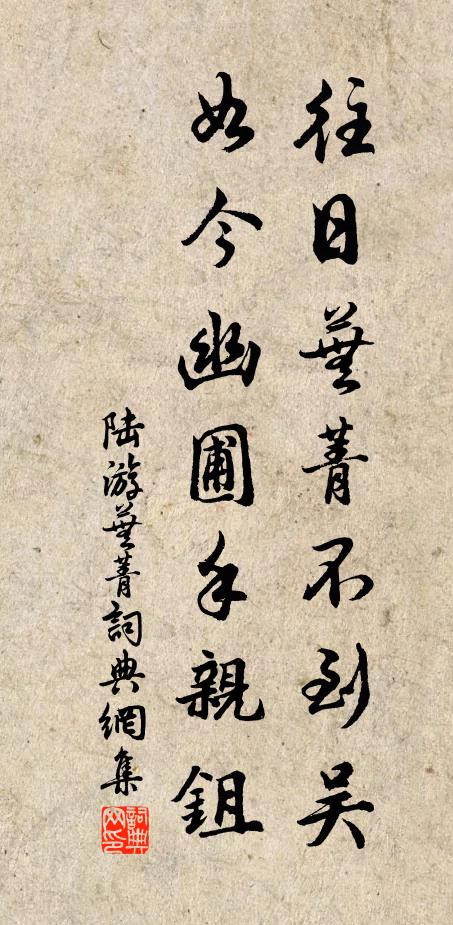 往日蕪菁不到吳
如今幽圃手親鉏
陸游蕪菁詞典網集
詞典网印